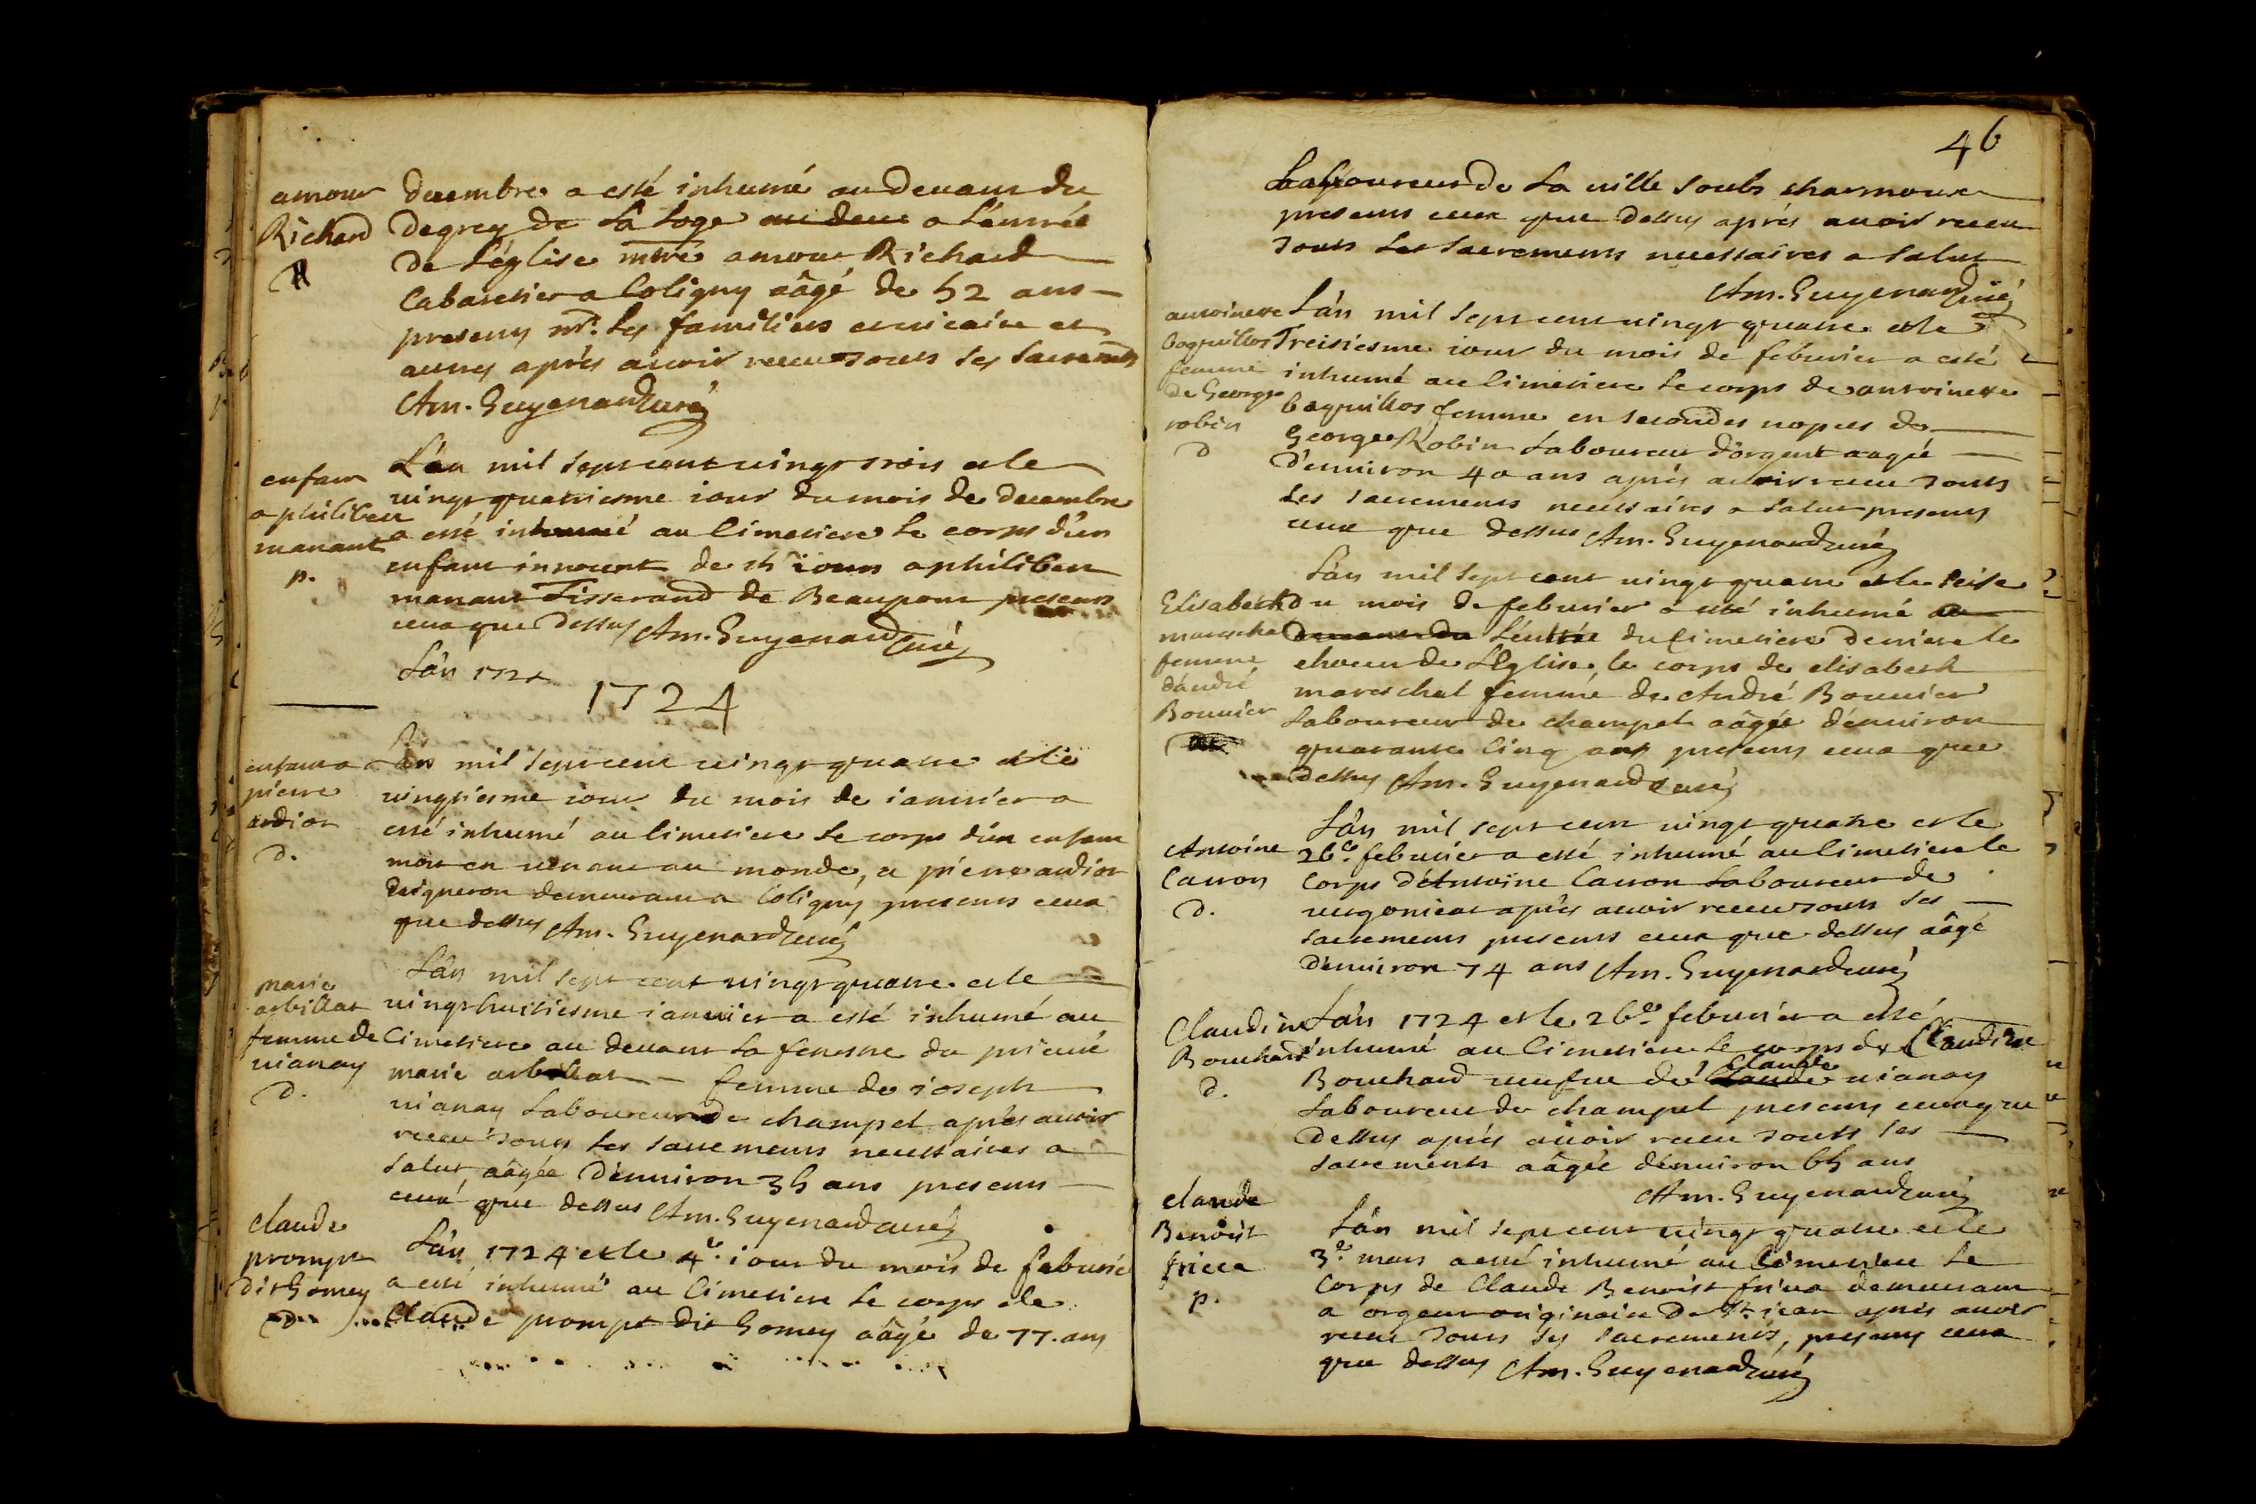 amour
Richard
decembre a esté inhumé au devant du
degrey de la loge a l'entrée
de l'église mtre amour Richard
Cabaretier a Coligny aâgé de 52 ans
presens mrs. les familiers et vicaire et
autres aprés avoir receu tous les sacremts
Am. Guyenard curé
enfant
a philibert
manant
p.
L'an mil sept cent vingt trois et le
vingt quatriesme iour du mois de decembre
a esté inhumé au cimetiere le corps d'un
enfant innocent de iours a philibert
manant Tisserand de Beaupont presens
ceux que dessus Am. Guyenard curé
L'an 172
1724
enfant a
pierre
audior
d.
L'an mil sept cent vingt quatre et le
vingtiesme iour du mois de ianvier a
esté inhumé au cimetiere le corps d'un enfant
mort en venant au monde, a pierre audior
vigneron demeurant a Coligny presens ceux
que dessus Am. Guyenard curé
marie
arbillat
femme de
vianay
d.
L'an mil sept cent vingt quatre et le
vingt huitiesme ianvier a esté inhumé au
Cimetiere au devant la fenestre du prieuré
marie arbillat femme de ioseph
vianay laboureur de champel aprés avoir
receu tous les sacremens necessaires a
salut, aâgée d'environ 35 ans presens
ceux que dessus Am. Guyenard curé
claude
prompt
dit Gomey
L'an 1724 et le 4e. iour du mois de febvrie
a esté inhumé au Cimetiere le corps de
Claude prompt dit Gomey aâgé de 77. ans
46
Laboureur de la ville soubs charmoux
presens ceux que dessus aprés avoir receu
tous les sacremens necessaires a salut
Am. Guyenard curé
antoinette
boquillos
femme
de George
robin
d
L'an mil sept cent vingt quatre et le
Treisiesme iour du mois de febvrier a esté
inhumé au cimetiere le corps de antoinette
boquillos femme en secondes nopces de
George Robin laboureur d'orgent aagée
d'environ 40 ans aprés avoir receu tous
les sacremens necessaires a salut presens
ceux que dessus Am. Guyenard curé
Elisabeth
mareschal
femme
d'andré
Bouvier
L'an mil sept cent vingt quatre et le seise
du mois de febvrier a esté inhumé au
devant du l'entrée du cimetiere derriere le
choeur de L'Eglise, le corps de elisabeth
mareschal femme de André Bouvier
laboureur de champel aâgée d'environ
quarante cinq ans presens ceux que
dessus Am. Guyenard curé
Antoine
Carron
d.
L'an mil sept cent vingt quatre et le
26e. febvrier a esté inhumé au cimetiere le
Corps d'Antoine Carron laboureur de
vergonieat aprés avoir receu tous les
sacremens presens ceux que dessus aâgé
d'environ 74 ans Am. Guyenard curé
Claudine
Bouchard
d.
L'an 1724 et le 26e. febvrier a esté
inhumé au Cimetiere le corps de Claudine
Bouchard veufve de Claude vianay
laboureur de champel presens ceux que
dessus aprés avoir receu touts les
sacrements aâgée d'environ 65 ans
Am. Guyenard curé
claude
Benoist
friera
p.
L'an mil sept cent vingt quatre et le
3e. mars a esté inhumé au Cimetiere le
Corps de Claude Benoist friera demeurant
a orgent originaire de st. jean aprés avoir
receu tous les sacrements, presens ceux
que dessus Am. Guyenard curé